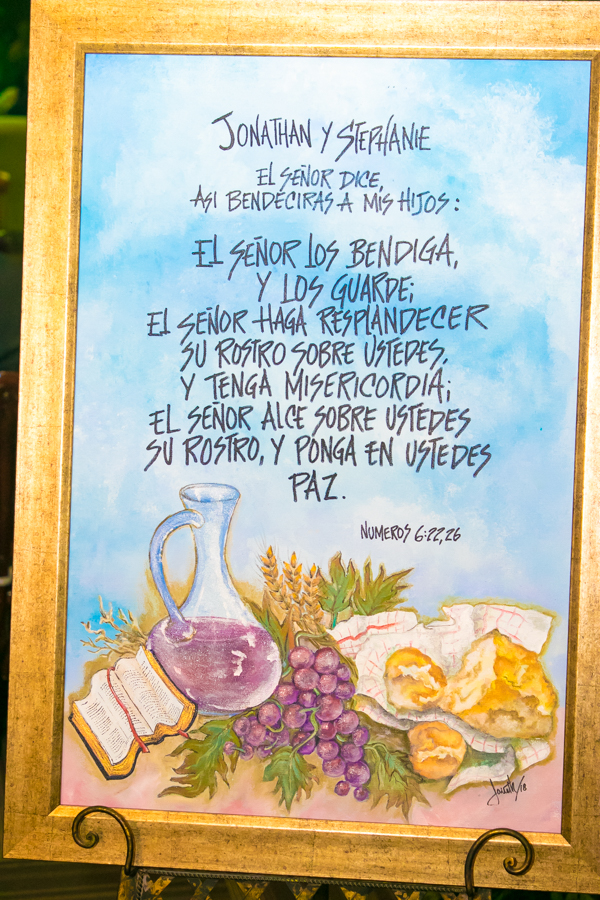 JONATHAN Y STEPHANIE
EL SEÑOR DICE,
ASI BENDECIRAS A MIS HIJOS:
EL SEÑOR LOS BENDIGA,
Y LOS GUARDE;
EL SEÑOR HAGA RESPLANDECER
SU ROSTRO SOBRE USTEDES,
Y TENGA MISERICORDIA;
EL SEÑOR ALCE SOBRE USTEDES
SU ROSTRO, Y PONGA EN USTEDES
PAZ.
NUMEROS 6:22,26